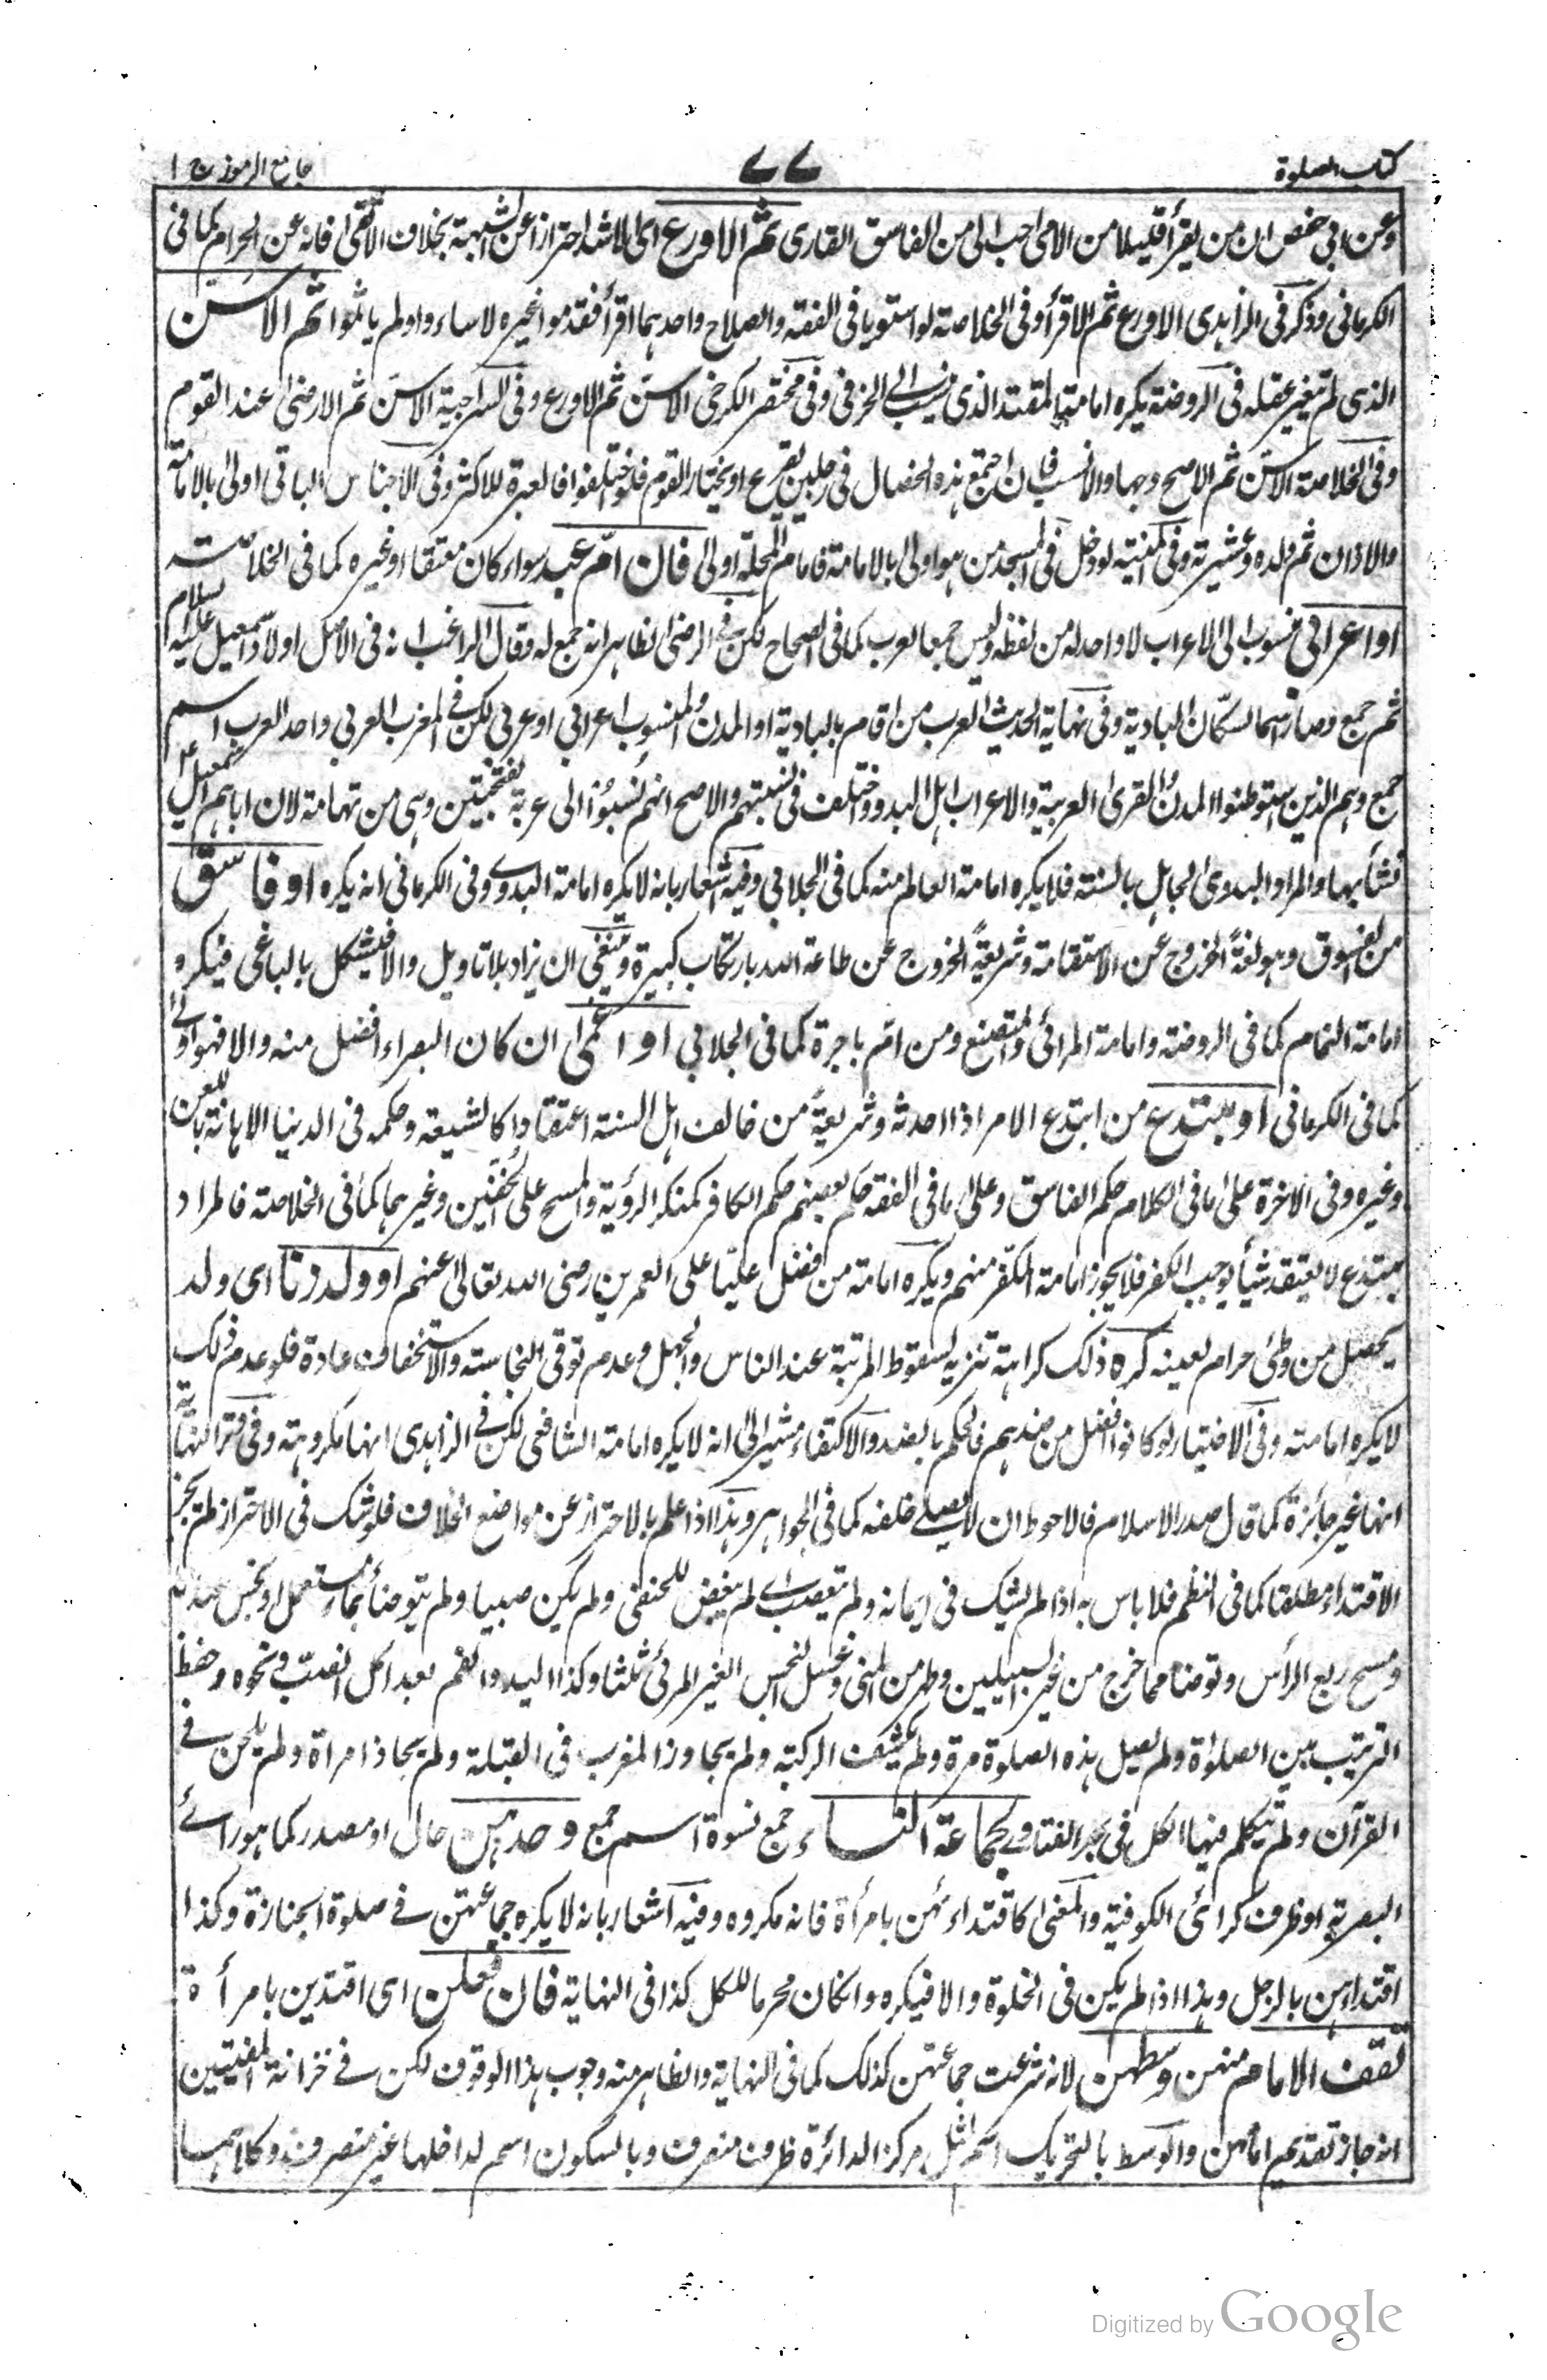 كتاب الصلوة
۷۷
جامع الرموز ج ا
وعن ابي حفص ان من يقرأ قليلا من الامي احب الي من الفاسق القارى ثم الاورع اى الاشد احترازا عن الشبهة بخلاف الاتقى فانه عن الحرام كما فى
الكرمانى وذكر فى الزاهدى الاورع ثم الاقرأ وفى الخلاصة لو استويا فى الفقه والصلاح واحدهما اقرأ فقدموا غيره لاساءوا ولم ياثموا ثم الاسن
الذى لم تغير عقله فى الروضة يكره امامة المقتدا الذى ينسب الى الخرفى وفى مختصر الكرخى الاسن ثم الاورع وفى السراجية الاسن ثم الارضى عند القوم
وفى الخلاصة الاسن ثم الاصبح وجها والانسب فان اجتمع هذه الخصال فى رجلين يقرع او يختار القوم فلو اختلفوا فالعبرة للاكثر وفى الاجناس البانى اولى بالامامة
والاذان ثم ولده وعشيرته وفى المنية لو دخل فى المسجد من هو اولى بالامامة فامام المحلة اولى فان ام عبد سواء كان معتقا او غيره كما فى الخلاصة
او اعرابي منسوب الى الاعراب لا واحد له من لفظه وليس جمعا لعرب كما فى الصحاح لكن فى الرضى الظاهر انه جمع له وقال الراغب انه فى الاصل اولاد اسمعيل عليه السلام
ثم جمع وصار اسما لسكان البادية وفى نهاية الحديث العرب من اقام بالبادية او المدن والمنسوب اعرابي او عربي لكن فى المغرب العربي واحد العرب اسم
جمع وهم الذين استوطنوا المدن والقرى العربية والاعراب اهل البدو واختلف فى نسبتهم والاصح انهم نسبوا الى عربة بفتحتين وهى من تهامة لان اباهم اسمعيل عل
نشأ بها والمراد البدوى الجاهل بالسنة فلا يكره امامة العالم منه كما فى الجلابي وفيه اشعار بانه لا يكره امامة البدوے وفى الكرمانى انه يكره او فاسق
من الفسوق وهو لغة الخروج عن الاستقامة وشريعة الخروج عن طاعة الله بارتكاب كبيرة وينبغى ان يزاد بلا تاويل والا فيشكل بالباغى فيكره
امامة النمام كما فى الروضة وامامة المرائى والمتصنع ومن ام باجرة كما فى الجلابي او اعمى ان كان البصراء افضل منه والا فهو اولى
كما فى الكرمانى او مبتدع من ابتدع الامر اذا احدثه وشريعة من خالف اهل السنة اعتقادا كالشيعة وحكمه فى الدنيا الاهانة باللعن
وغيره وفى الاخرة على ما فى الكلام حكم الفاسق وعلى ما فى الفقه حكم بعضهم حكم الكافر كمنكر الرؤية والمسح على الخفين وغيرهما كما فى الخلاصة فالمراد
مبتدع لا يعتقد شيأ يوجب الكفر فلا يجوز امامة المكفر منهم ويكره امامة من فضل عليا على العمرين رضى الله تعالى عنهم او ولد زنا اى ولد
يحصل من وطئ حرام لعينه كره ذلك كراهة تنزيه لسقوط المرتبة عند الناس والجهل وعدم توقى النجاسة والاستخفاف عادة فلو عدم ذلك
لا يكره امامته وفى الاختيار لو كانوا افضل من ضدهم فالحكم بالضد والاكتفاء مشير الى انه لا يكره امامة الشافعى لكن فى الزاهدى انها مكروهة وفى وتر النهاية
انها غير جائزة كما قال صدر الاسلام فالاحوط ان لا يصلى خلفه كما فى الجواهر وهذا اذا علم بالاحتراز عن مواضع الخلاف فلو شك فى الاحتراز لم تجز
الاقتداء مطلقا كما فى النظم فلا باس به اذا لم يشك فى ايمانه ولم يتعصب اى لم يبغض للحنفى ولم يكن صبيا ولم يتوضأ بماء مستعمل او نجس عندنا
ومسح ربع الرأس وتوضا مما خرج من غير السبيلين وطهر من المنى وغسل النجس الغير المرئى ثلثا وكذا اليد والفم بعد اكل الضب ونحوه وحفظ
الترتيب بين الصلوة ولم يصل هذه الصلوة مرة ولم يكشف الركبة ولم يجاوز المغرب فى القبلة ولم يحاذ امراة ولم يلحن فى
القرآن ولم يتكلم فيها الكل فى بحر الفتاوى كجماعة النساء جمع نسوة اسم جمع وحدهن حال او مصدر كما هو رائے
البصرية او ظرف كرائى الكوفية والمعنى كاقتدائهن بامرأة فانه مكروه وفيه اشعار بانه لا يكره جماعتهن فى صلوة الجنازة وكذا
اقتداءهن بالرجل وهذا اذا لم يكن فى الخلوة والا فيكره وانكان محرما للكل كذا فى النهاية فان فعلن اى اقتدين بامرأة
تقف الامام منهن وسطهن لانه شرعت جماعتهن كذلك كما فى النهاية والظاهر منه وجوب هذا الوقوف لكن فى خزانة المفتيين
انه جاز تقديم امامهن والوسط بالتحريك اسم لمثل مركز الدائرة ظرف متصرف وبالسكون اسم لداخلها غير متصرف وكلاهما
Digitized by Google